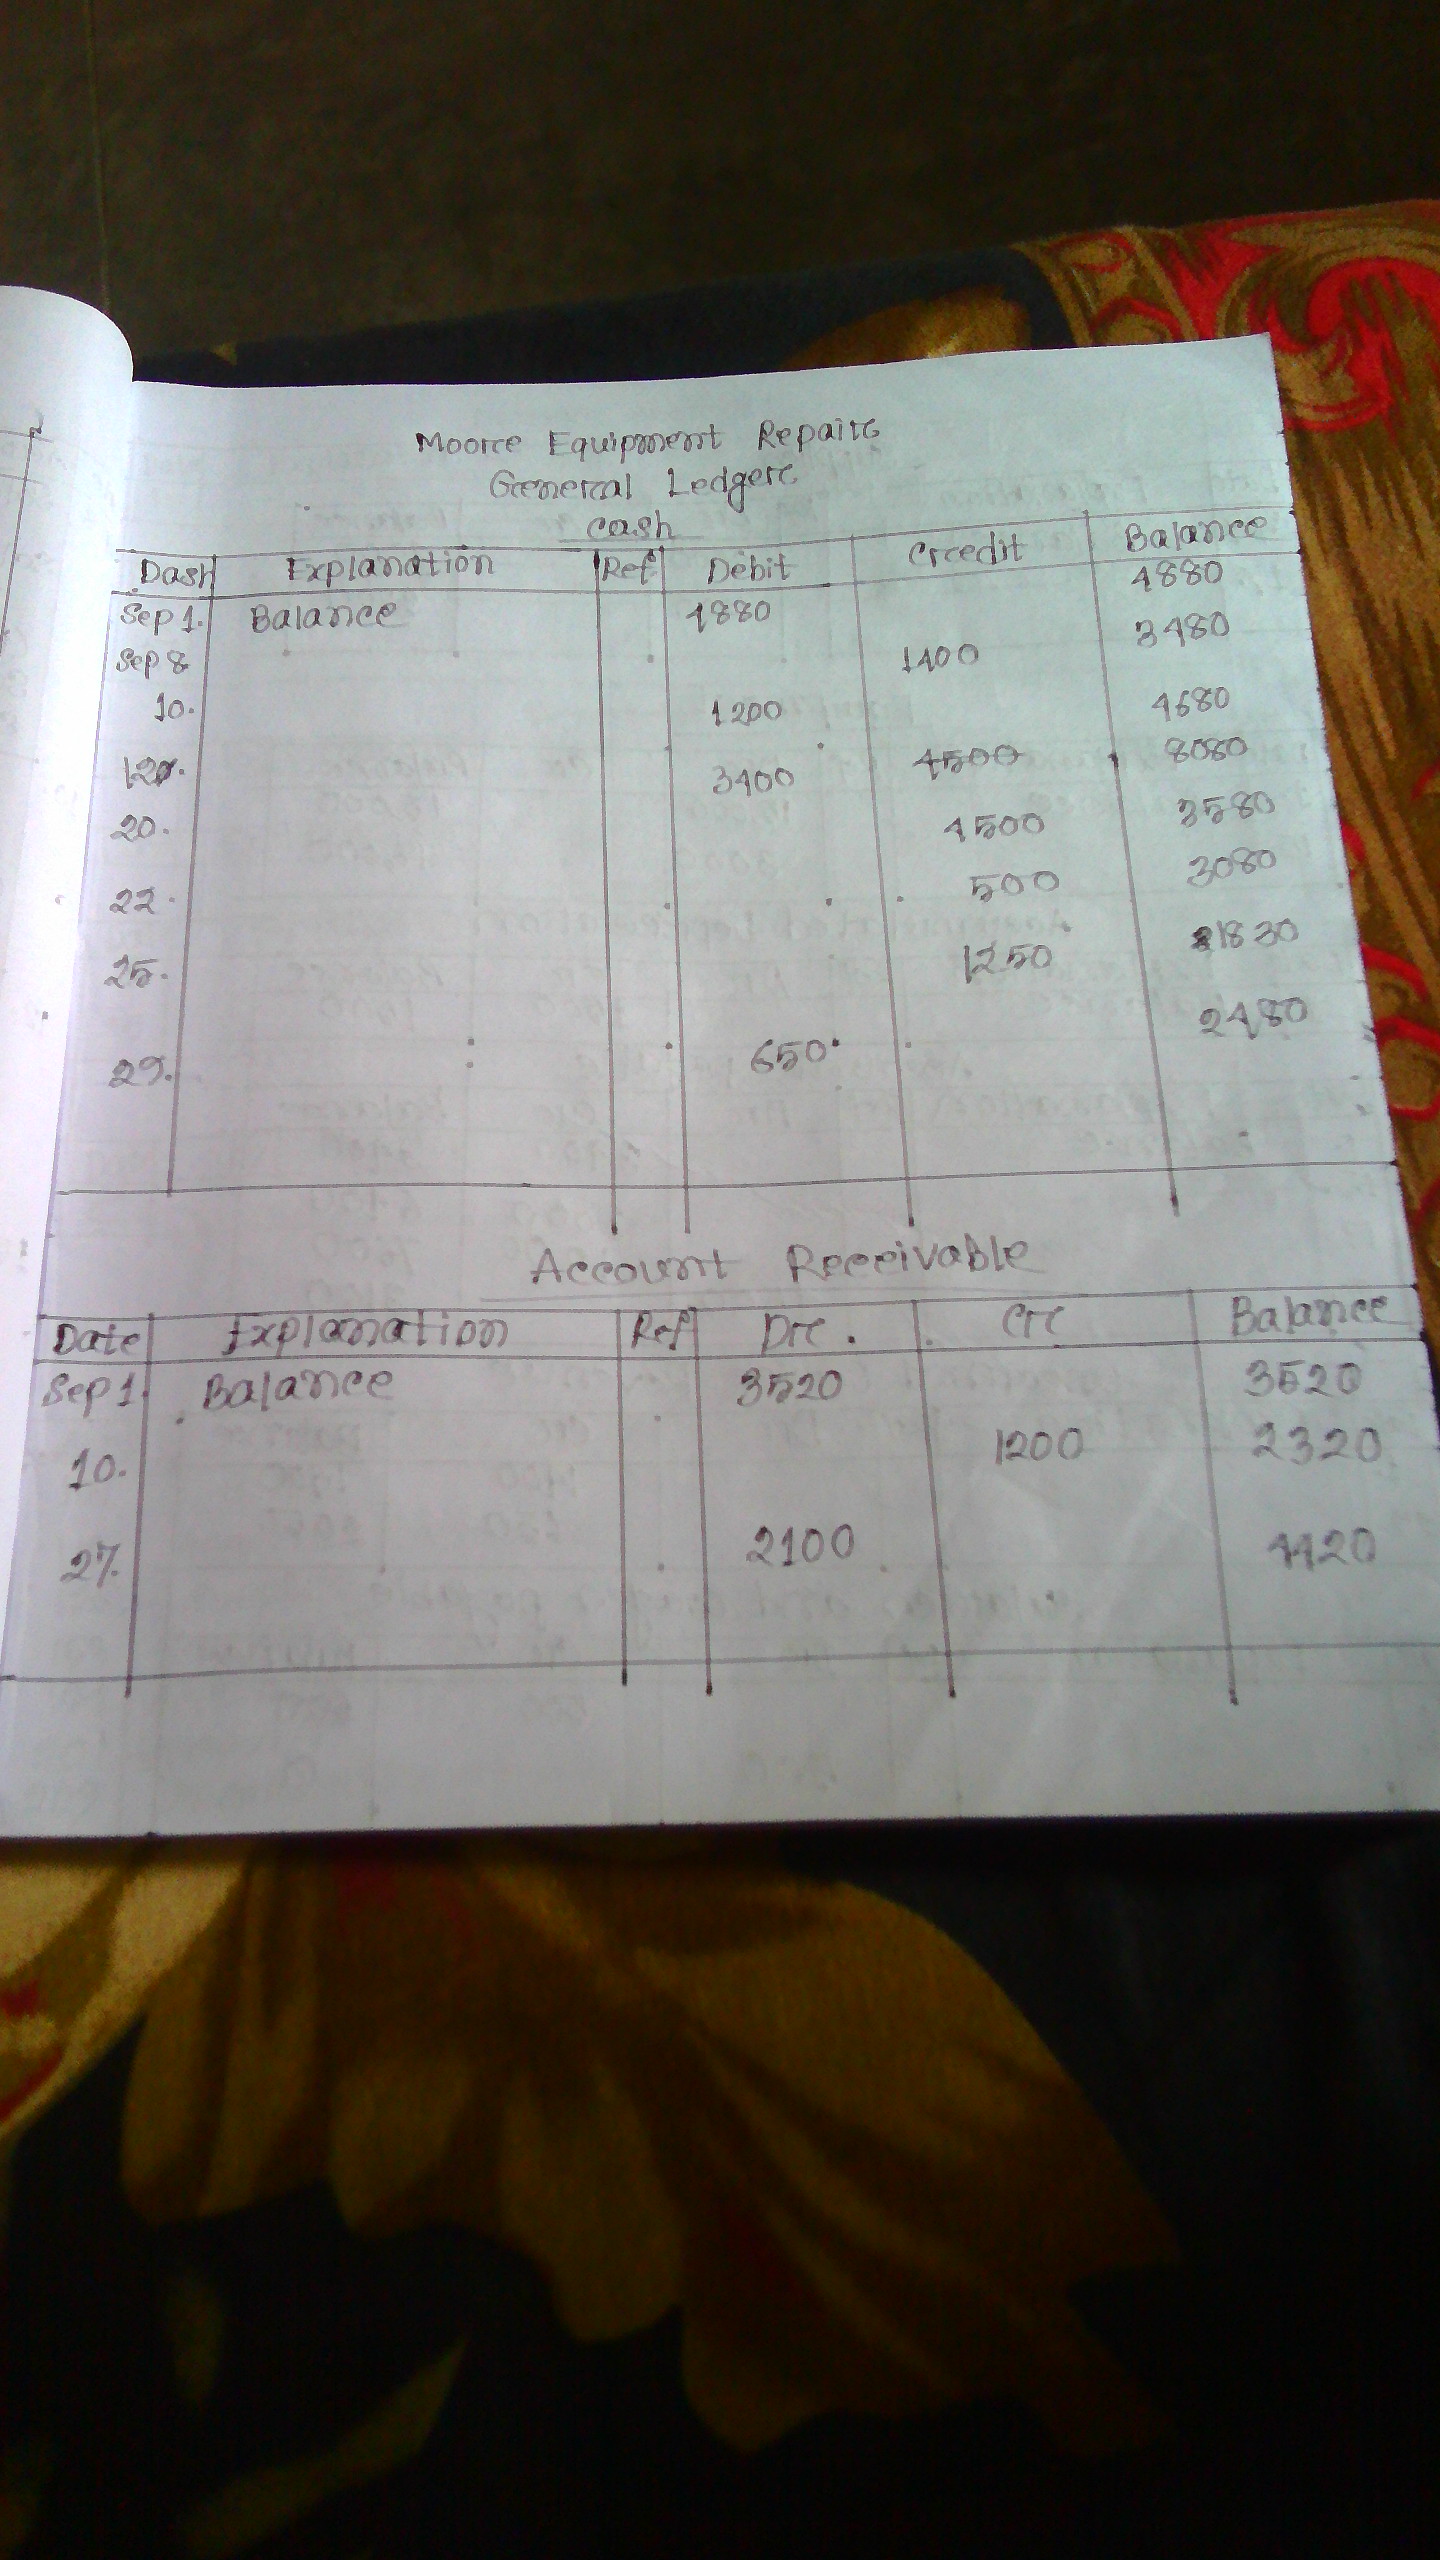 Moore Equipment Repair
General Ledger
Cash
Dash Explanation Ref Debit Credit Balance
Sep 1. Balance 4880 4880
Sep 8 1400 3480
10. 1200 4680
12. 3400 4500 8080
20. 4500 3580
22. 500 3080
25. 1250 1830
29. 650 2480
Account Receivable
Date Explanation Ref Dr. Cr Balance
Sep 1. Balance 3520 3520
10. 1200 2320
27. 2100 4420